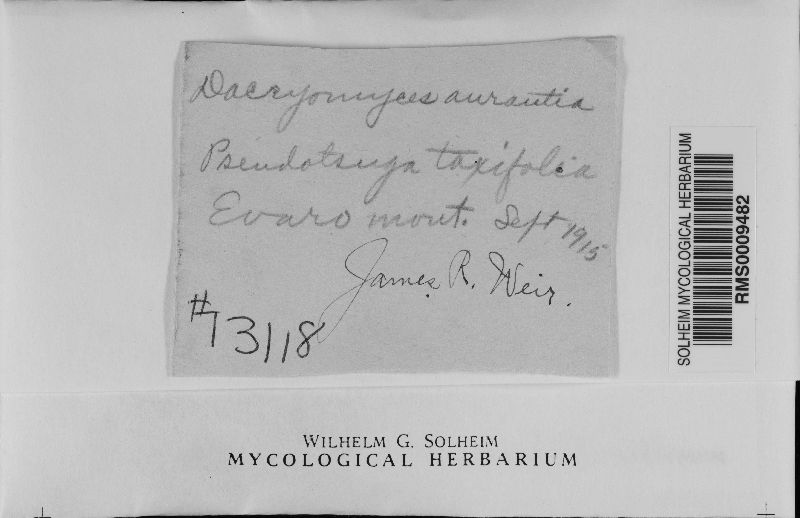 Dacryomyces aurantia
Pseudotsuga taxifolia
Evaro mont. Sept 1915
James R. Weir.
#13118
SOLHEIM MYCOLOGICAL HERBARIUM
RMS0009482
WILHELM G. SOLHEIM
MYCOLOGICAL HERBARIUM